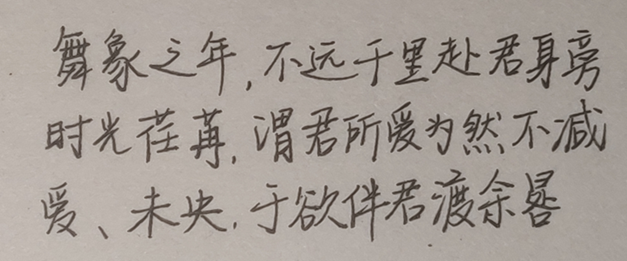 舞象之年,不远千里赴君身旁
时光荏苒,渭君所爱为然不减
爱、未央.于欲伴君渡余晷